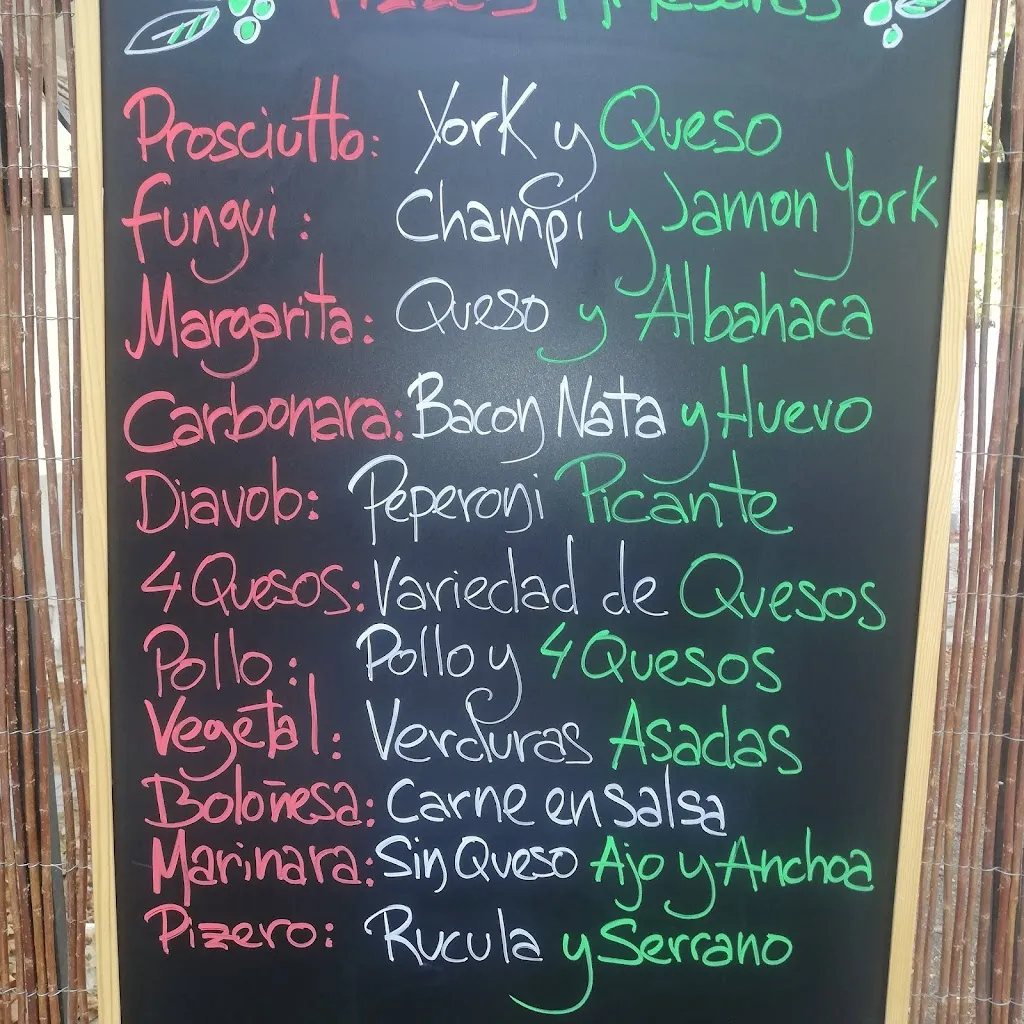 Prosciutto: York y Queso
Fungui: Champi y Jamon York
Margarita: Queso y Albahaca
Carbonara: Bacon Nata y Huevo
Diavolo: Peperoni Picante
4 Quesos: Variedad de Quesos
Pollo: Pollo y 4 Quesos
Vegetal: Verduras Asadas
Boloñesa: Carne en Salsa
Marinara: Sin Queso Ajo y Anchoa
Pizzero: Rucula y Serrano